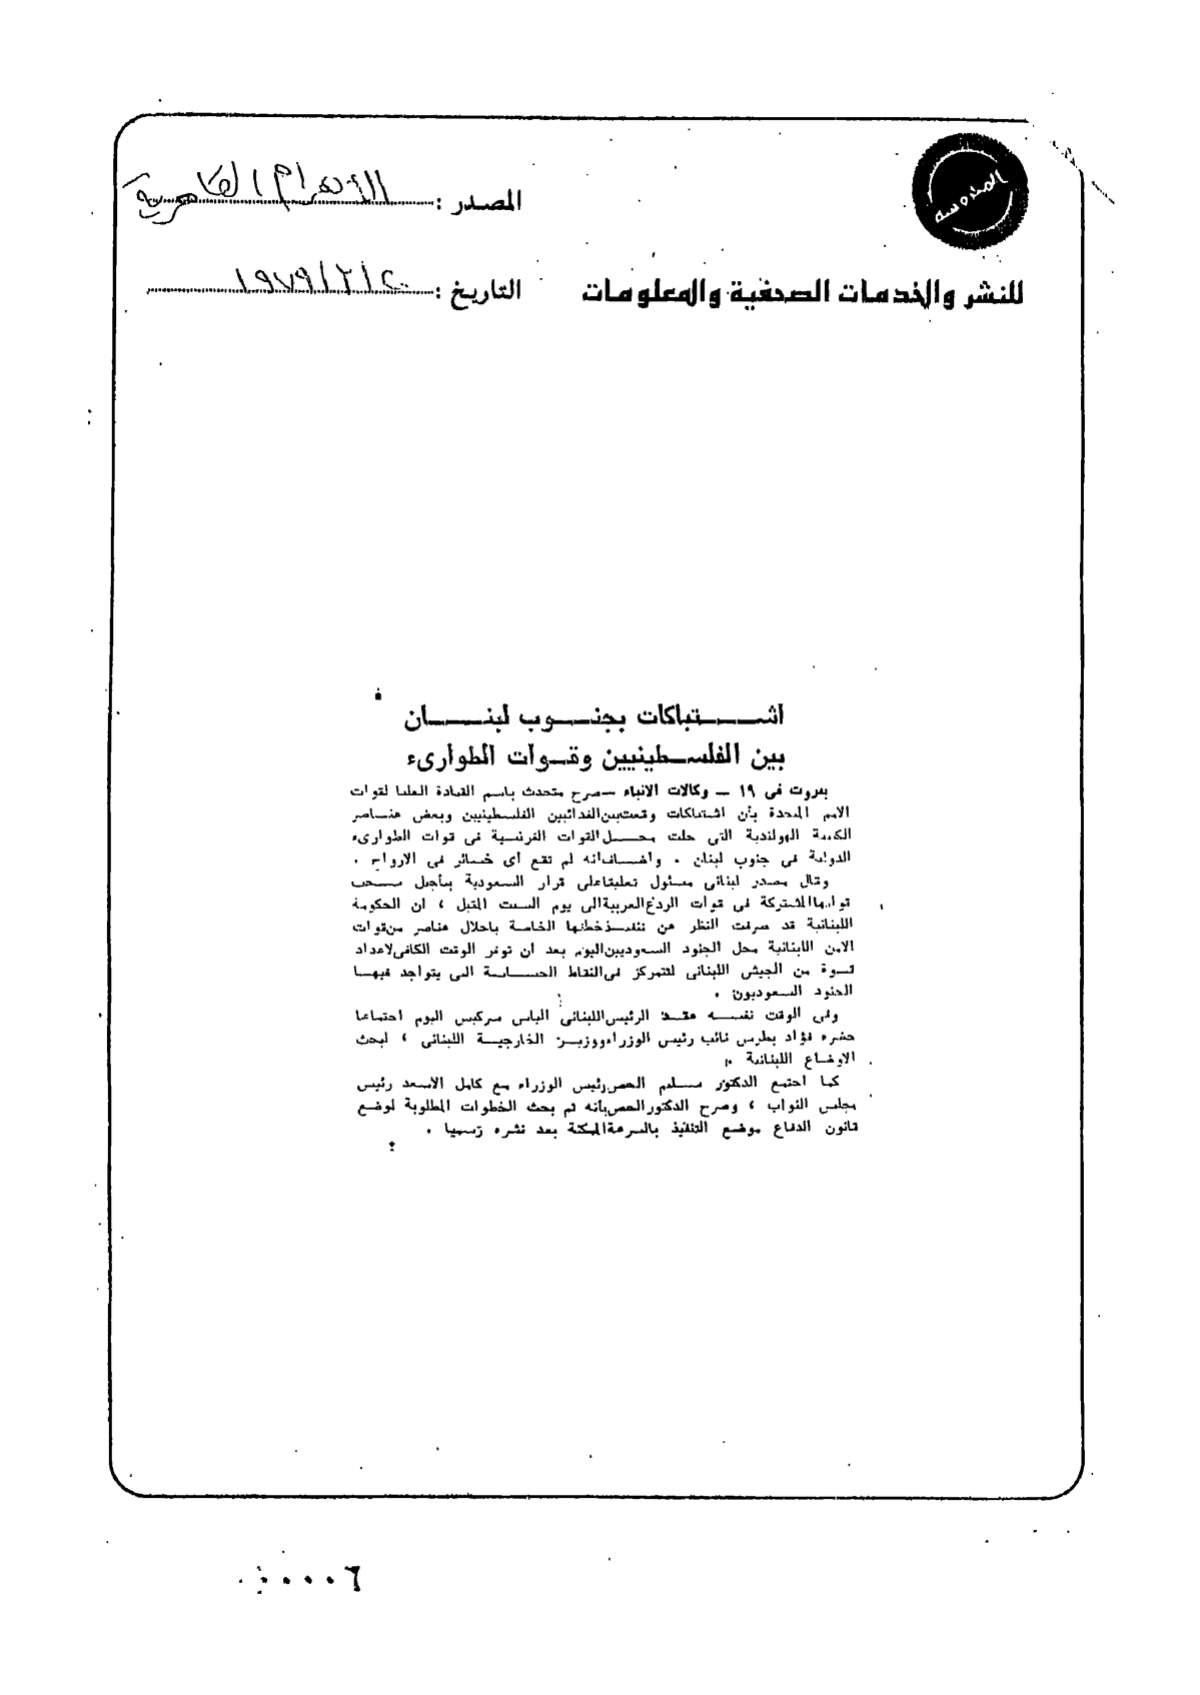 المحروسة
المصدر : الأهرام القاهرية
للنشر والخدمات الصحفية والمعلومات
التاريخ : ١٩٧٩/٢/٢٠
اشــــتباكات بجنــوب لبنــــان
بين الفلســطينيين وقــوات الطوارىء
بيروت فى ١٩ — وكالات الانباء — صرح متحدث باسم القيادة العليا لقوات
الامم المتحدة بأن اشتباكات وقعت بين الفدائيين الفلسطينيين وبعض عناصر
الكتيبة الهولندية التى حلت محـــل القوات الفرنسية فى قوات الطوارىء
الدولية فى جنوب لبنان . واضــاف انه لم تقع أى خسائر فى الارواح .
وقال مصدر لبنانى مسئول تعليقا على قرار السعودية بتأجيل ســحب
قواتها المشتركة فى قوات الردع العربية الى يوم السبت المقبل ، ان الحكومة
اللبنانية قد صرفت النظر عن تنفيـذ خطتها الخاصة باحلال عناصر من قوات
الامن اللبنانية محل الجنود السعوديين اليوم بعد ان توفر الوقت الكافى لاعداد
قــوة من الجيش اللبنانى لتتمركز فى النقاط الحســاسة التى يتواجد فيهــا
الجنود السعوديون .
وفى الوقت نفســه عقــد الرئيس اللبنانى الياس سركيس اليوم اجتماعا
حضره فؤاد بطرس نائب رئيس الوزراء ووزيــر الخارجيــة اللبنانى ، لبحث
الاوضاع اللبنانية .
كما اجتمع الدكتور ســليم الحص رئيس الوزراء مع كامل الاسعد رئيس
مجلس النواب ، وصرح الدكتور الحص بانه تم بحث الخطوات المطلوبة لوضع
قانون الدفاع موضع التنفيذ بالسرعة الممكنة بعد نشره رسميا .